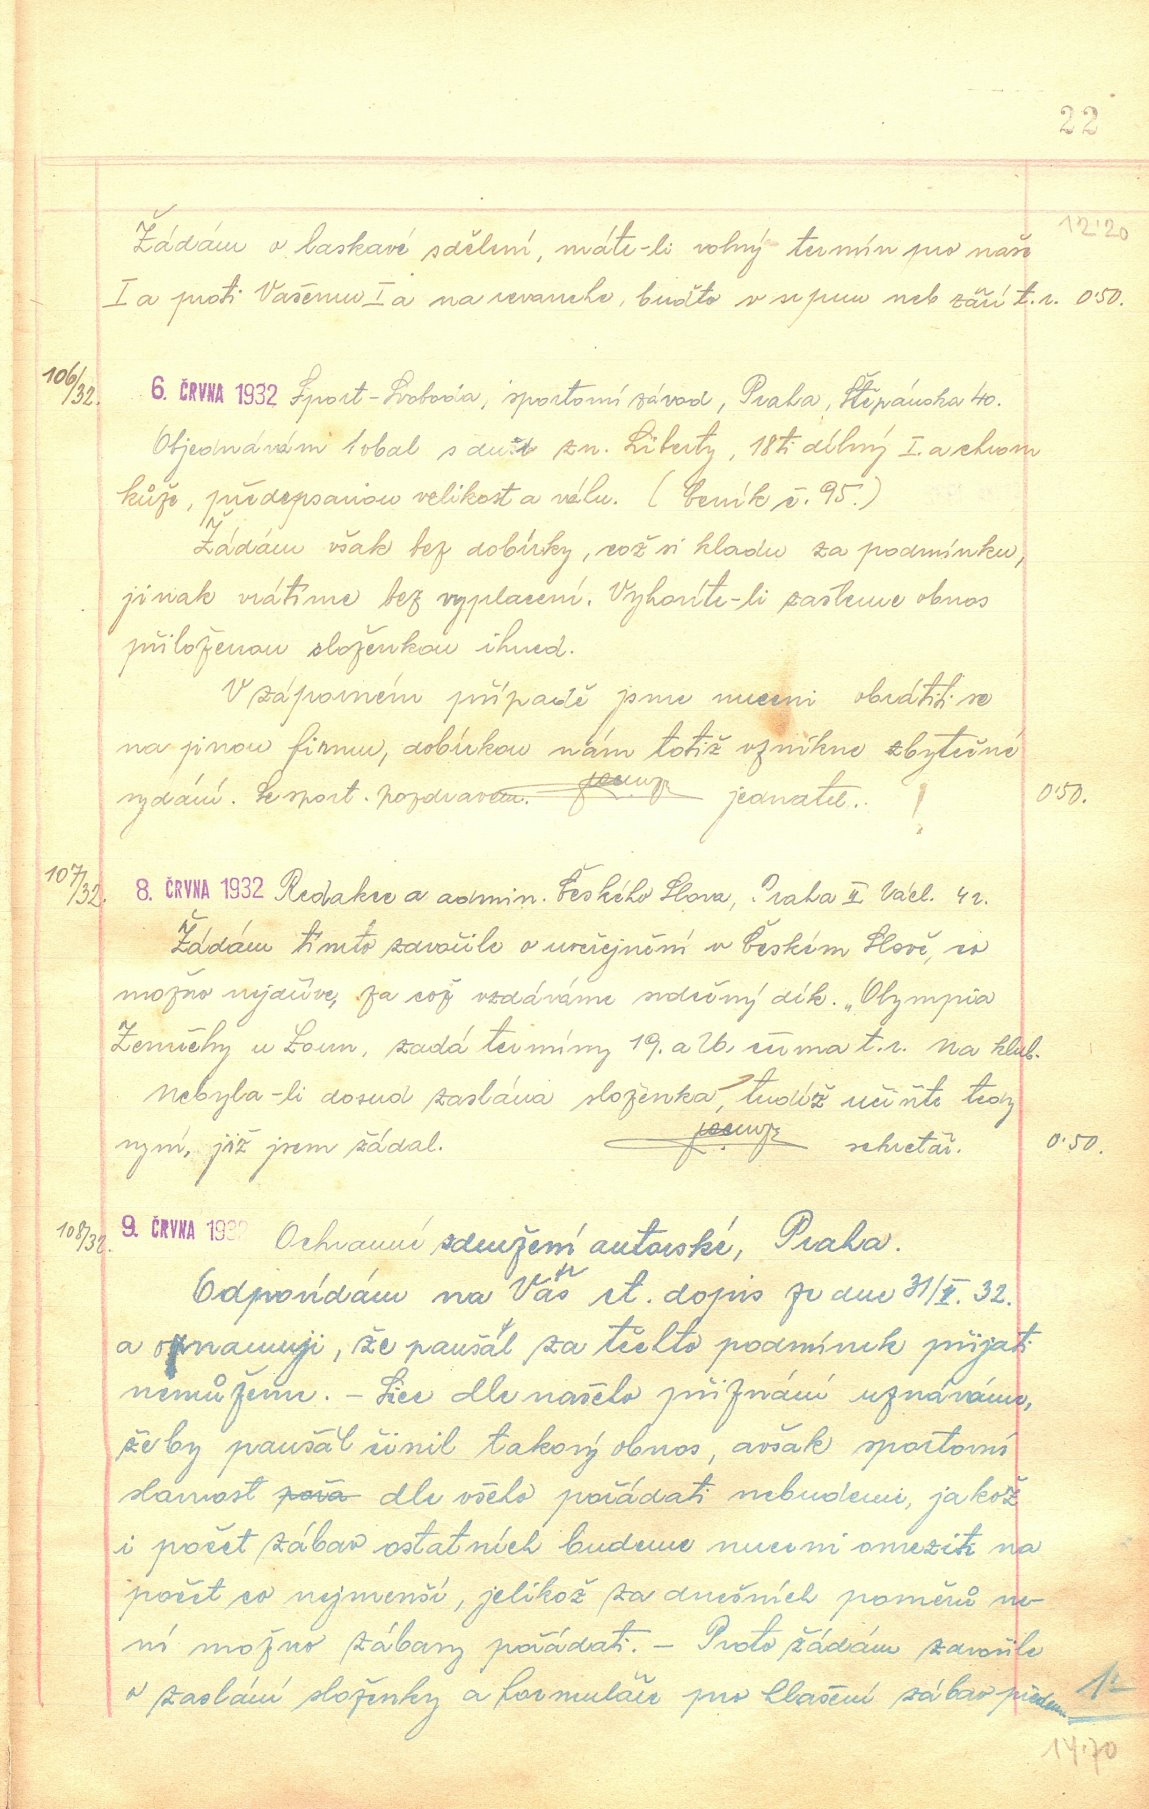 22
12·20
Žádám o laskavé sdělení, máte-li volný termín pro naše
I a proti Vašemu I a na revanche, buďto v srpnu neb září t.r. 0·50.
106/32. 6. ČRVNA 1932 Sport-Svoboda, sportovní závod, Praha, Štěpánská 40.
Objednávám 1 obal s duší zn. Liberty, 18ti dílný I.a chrom
kůže, předepsanou velikost a váhu. (Ceník č. 95.)
Žádám však bez dobírky, což si kladu za podmínku,
jinak vrátíme bez vyplacení. Vyhovíte-li zašleme obnos
přiloženou složenkou ihned.
V záporném případě jsme nuceni obrátiti se
na jinou firmu, dobírkou nám totiž vznikne zbytečné
vydání. Se sport. pozdravem. jednatel. ! 0·50.
107/32. 8. ČRVNA 1932 Redakce a admin. Českého Slova, Praha II Václ. 42.
Žádám tímto zdvořile o uveřejnění v Českém Slově, co
možno nejdříve, za což vzdáváme srdečný dík. „Olympia
Zeměchy u Loun, zadá termíny 19. a 26. června t.r. na hlub.
Nebyla-li dosud zaslána složenka, tudíž učiňte tedy
nyní, již jsem žádal. sekretář. 0·50.
108/32. 9. ČRVNA 1932 Ochranné sdružení autorské, Praha.
Odpovídám na Váš ct. dopis ze dne 31/V. 32.
a oznamuji, že paušál za těchto podmínek přijati
nemůžeme. – Sice dle našeho přiznání uznáváme,
že by paušál činil takový obnos, avšak sportovní
slavnost pořá dle všeho pořádati nebudeme, jakož
i počet zábav ostatních budeme nuceni omeziti na
počet co nejmenší, jelikož za dnešních poměrů ne-
ní možno zábavy pořádati. – Proto žádám zdvořile
o zaslání složenky a formuláře pro hlášení zábav předem. 1·-
14·70